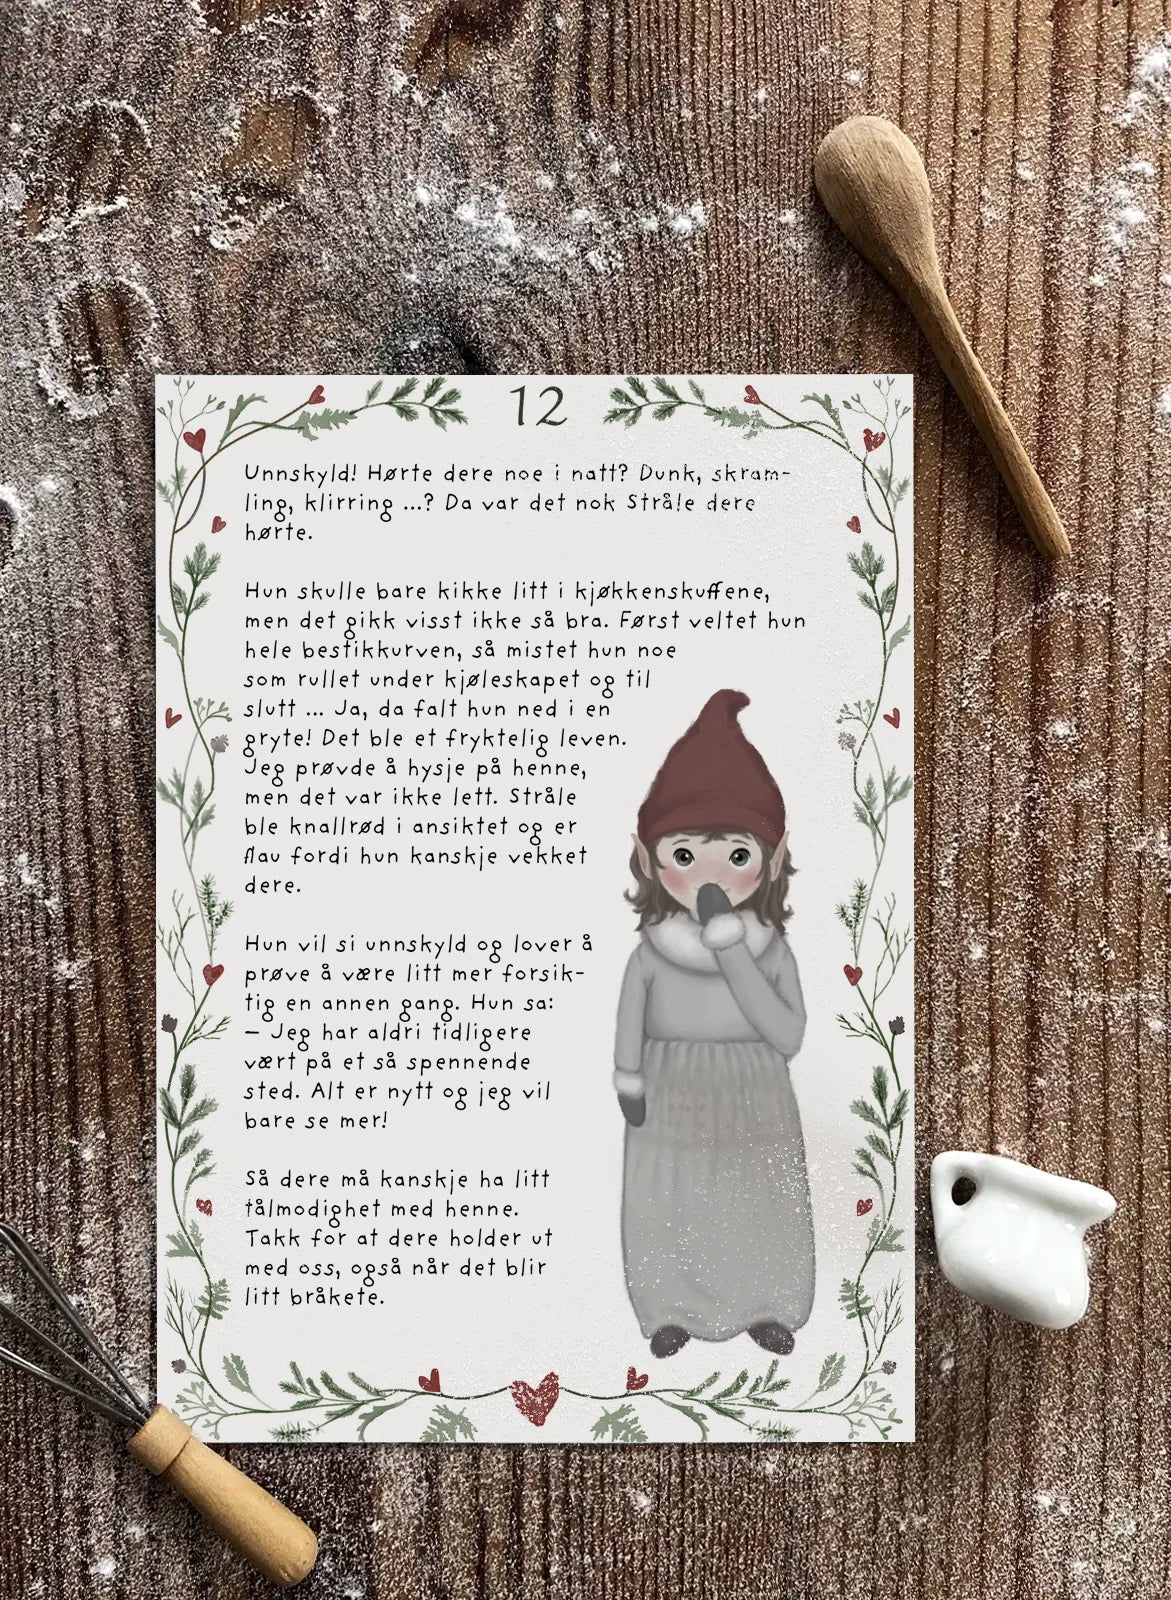 12
Unnskyld! Hørte dere noe i natt? Dunk, skram-
ling, klirring ...? Da var det nok Stråle dere
hørte.
Hun skulle bare kikke litt i kjøkkenskuffene,
men det gikk visst ikke så bra. Først veltet hun
hele bestikkurven, så mistet hun noe
som rullet under kjøleskapet og til
slutt ... Ja, da falt hun ned i en
gryte! Det ble et fryktelig leven.
Jeg prøvde å hysje på henne,
men det var ikke lett. Stråle
ble knallrød i ansiktet og er
flau fordi hun kanskje vekket
dere.
Hun vil si unnskyld og lover å
prøve å være litt mer forsik-
tig en annen gang. Hun sa:
– Jeg har aldri tidligere
vært på et så spennende
sted. Alt er nytt og jeg vil
bare se mer!
Så dere må kanskje ha litt
tålmodighet med henne.
Takk for at dere holder ut
med oss, også når det blir
litt bråkete.